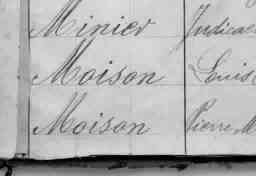 Minier Judica
Moison Louis
Moison Pierre M